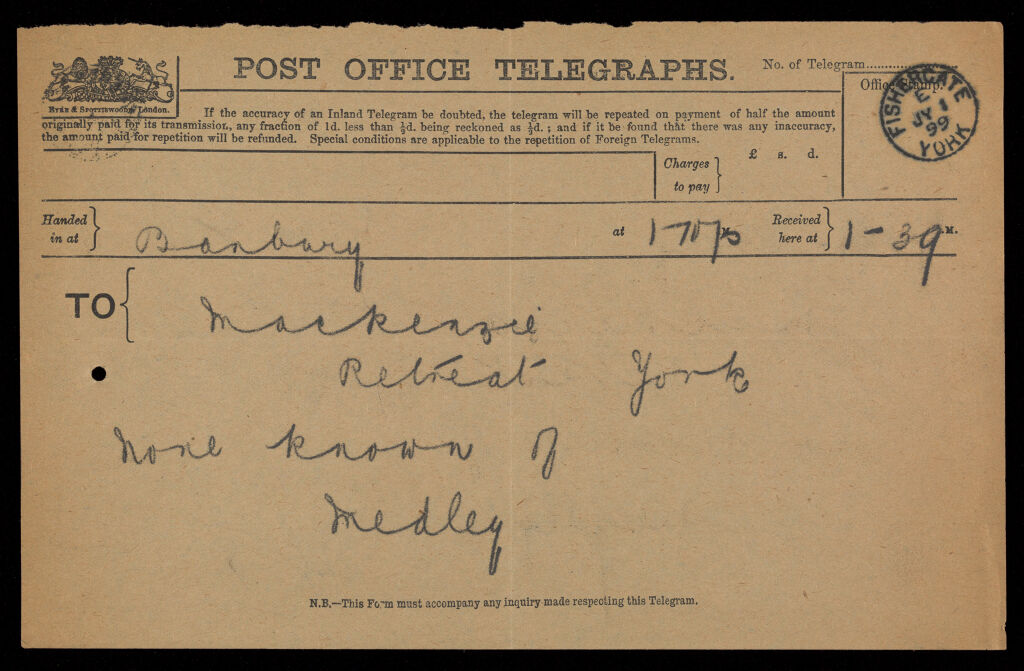 POST OFFICE TELEGRAPHS.
No. of Telegram
Office Stamp.
FISHERGATE
E
JY 1
99
YORK
EYRE & SPOTTISWOODE, London.
If the accuracy of an Inland Telegram be doubted, the telegram will be repeated on payment of half the amount
originally paid for its transmission, any fraction of 1d. less than ½d. being reckoned as ½d.; and if it be found that there was any inaccuracy,
the amount paid for repetition will be refunded. Special conditions are applicable to the repetition of Foreign Telegrams.
Charges to pay } £ s. d.
Handed in at } Banbury at 1- Received here at } 1-39 M.
TO {
Mackenzie
Retreat York
None known of
Medley
N.B.—This Form must accompany any inquiry made respecting this Telegram.